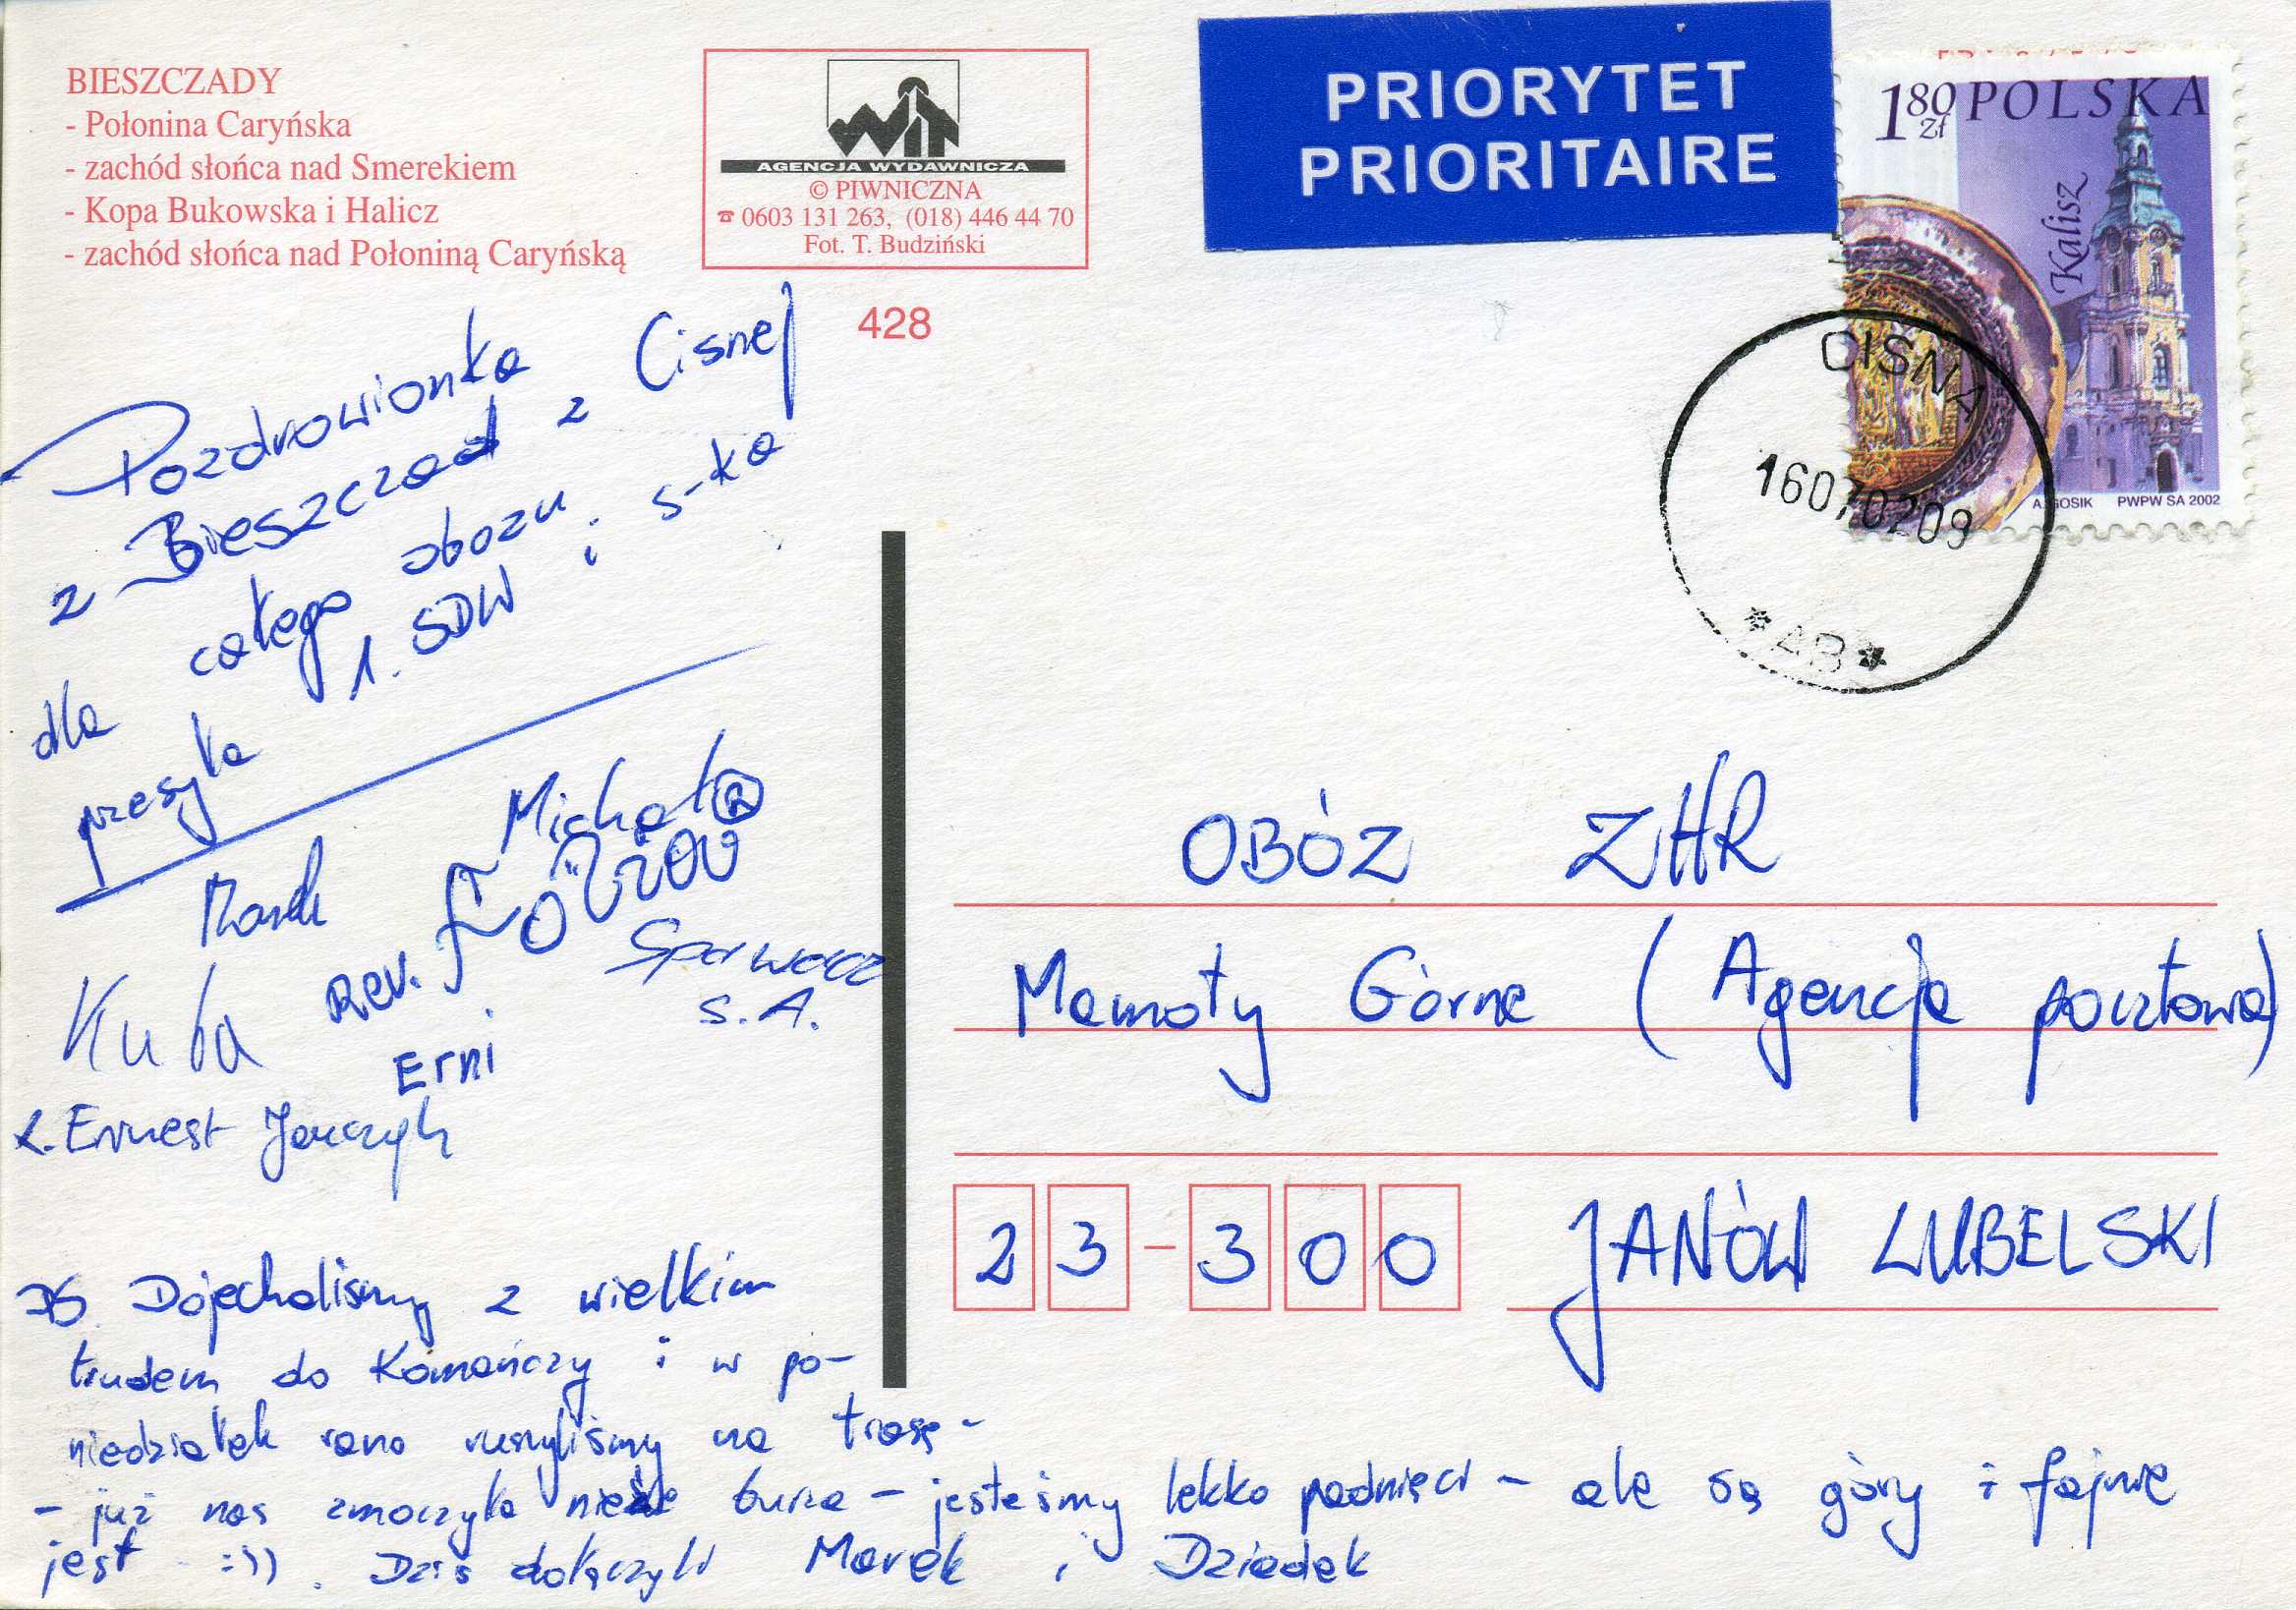 BIESZCZADY
- Połonina Caryńska
- zachód słońca nad Smerekiem
- Kopa Bukowska i Halicz
- zachód słońca nad Połoniną Caryńską
WiT
AGENCJA WYDAWNICZA
© PIWNICZNA
☎ 0603 131 263, (018) 446 44 70
Fot. T. Budziński
428
PRIORYTET
PRIORITAIRE
1 80 zł POLSKA
Kalisz
A. GOSIK PWPW SA 2002
CISNA
16070209
*AB*
Pozdrowionka
z Bieszczad z Cisnej
dla całego obozu
1. SDW i s-ka
przesyła
Michał ®
Marek
Rev.
Kuba
S.A.
Erni
Ernest
PS. Dojechaliśmy z wielkim
trudem do Komańczy i w po-
niedziałek rano ruszyliśmy na trasę -
- już nas zmoczyła niezła burza - jesteśmy lekko padnięci - ale są góry i fajnie
jest :)). Dziś dołączyli Marek i Dziadek
OBÓZ ZHR
Momoty Górne (Agencja pocztowa)
23-300 JANÓW LUBELSKI